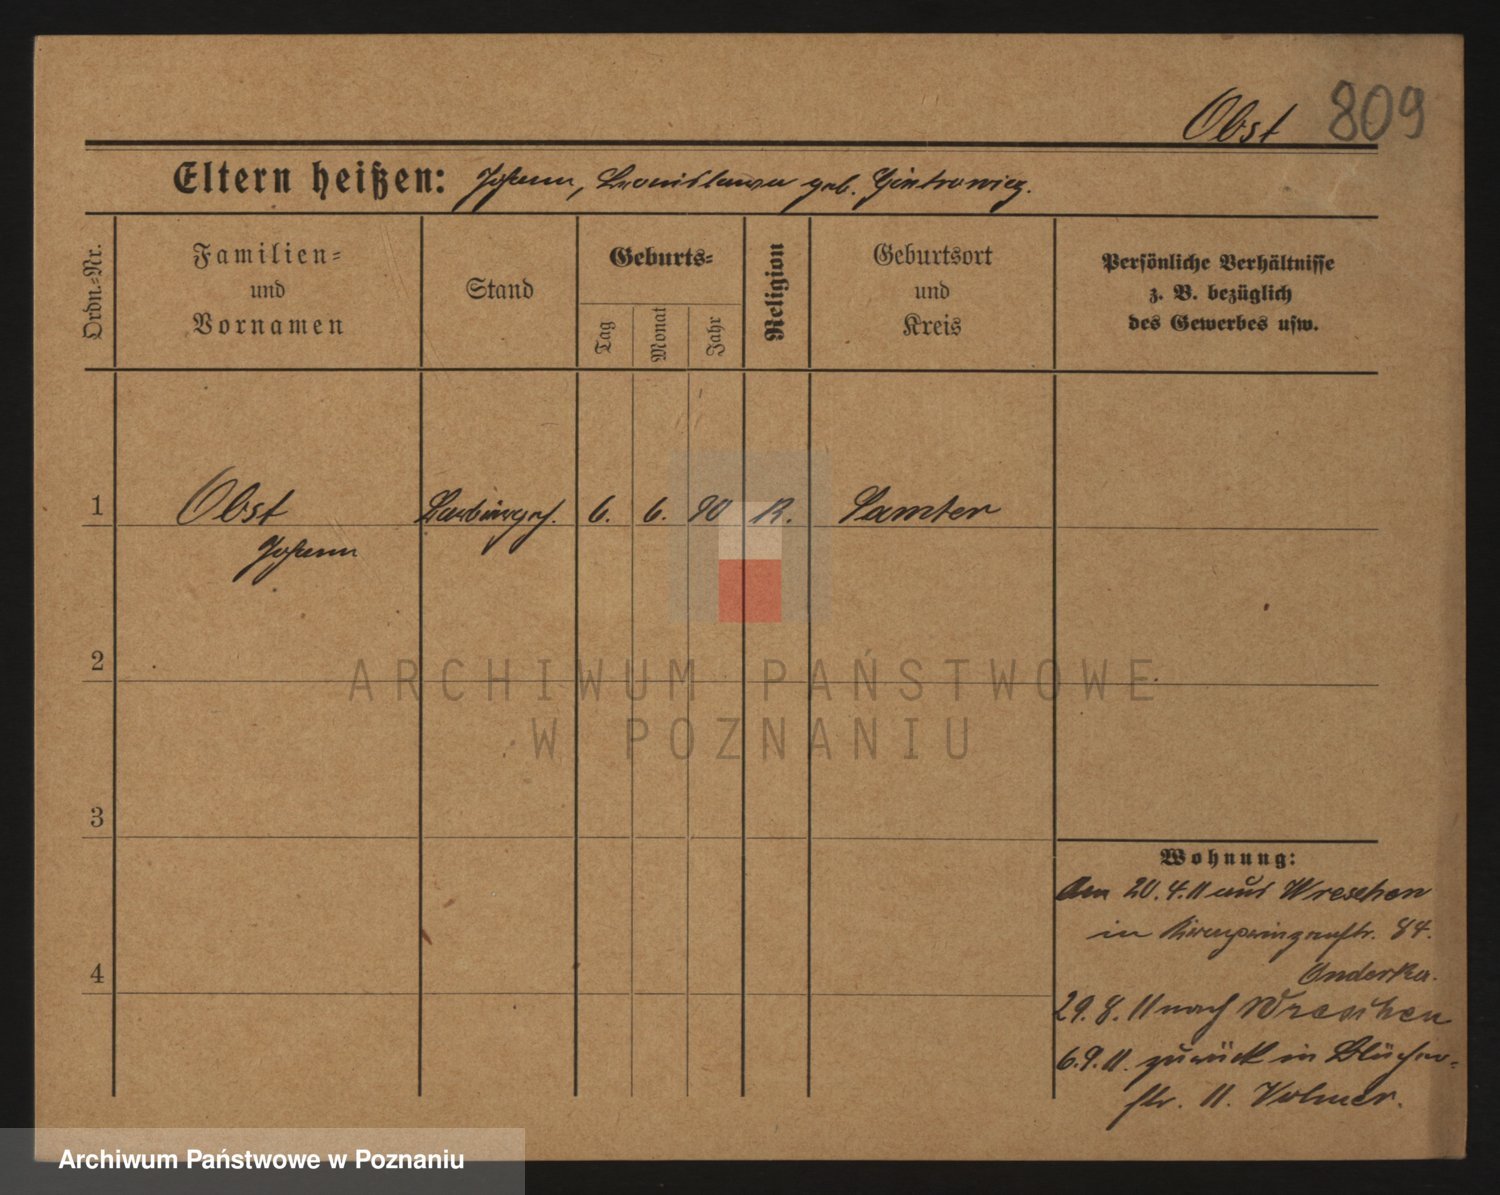 Obst 809
Eltern heißen: Johann, Bronislawa geb. Gintrowicz.
Ordn.-Nr.
Familien-
und
Vornamen
Stand
Geburts-
Tag
Monat
Jahr
Religion
Geburtsort
und
Kreis
Persönliche Verhältnisse
z. B. bezüglich
des Gewerbes usw.
1 Obst 6. 6. 90 K. Samter
Johann
2
3
4
Wohnung:
Am 20.4.11 aus Wreschen
in Kronprinzenstr. 84.
Anderka.
29.8.11 nach Wreschen
6.9.11. zurück in Blücher-
str. 11. Volmer.
ARCHIWUM PAŃSTWOWE
W POZNANIU
Archiwum Państwowe w Poznaniu